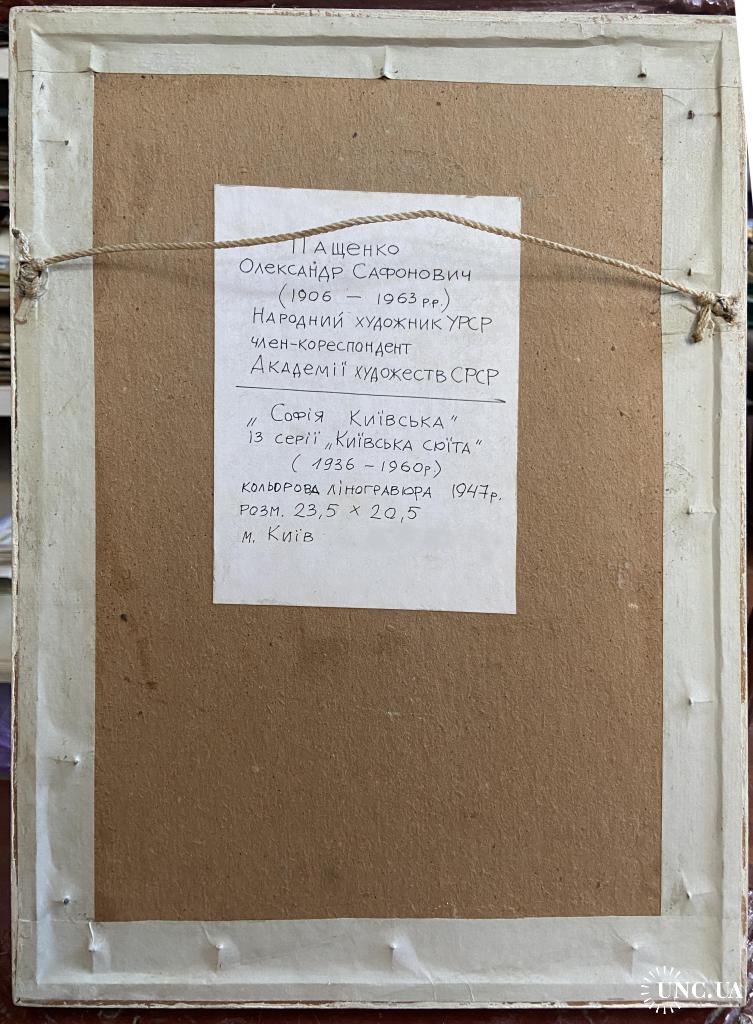 Пащенко
Олександр Сафонович
(1906 – 1963 р.р.)
Народний художник УРСР
член-кореспондент
Академії художеств СРСР
„Софія Київська"
із серії „Київська сюїта"
(1936 – 1960р.)
кольорова ліногравюра 1947р.
розм. 23,5 × 20,5
м. Київ
UNC.UA